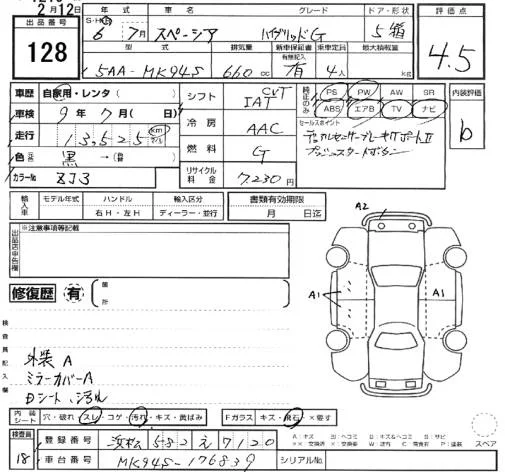 2月12日
出品番号
128
年式
車名
グレード
ドア・形状
S・H・R
6年7月
スペーシア
ハイブリッドG
5箱
型式
排気量
新車保証書
有無記入
乗車定員
最大積載量
5AA-MK94S
660cc
有
4人
kg
評価点
4.5
車歴
自家用・レンタ( )
車検
9年7月( 日)
走行
13,525
km
マイル
色
黒→(替)
カラーNo
ZJ3
シフト
CVT
IAT
冷房
AAC
燃料
G
リサイクル料金
7,230円
純正のみ
PS PW AW SR
ABS エアB TV ナビ
セールスポイント
デュアルセンサーブレーキサポートⅡ
プッシュスタートボタン
内装評価
b
輸入車
モデル年式
ハンドル
輸入区分
右H・左H
ディーラー・並行
書類有効期限
月 日迄
出品店申告欄
※注意事項等記載
修復歴
有
箇所
検査員記入欄
外装 A
ミラーカバーA
Dシート、シミスレ
A2
A1
A1
内装シート
穴・破れ・スレ・コゲ・汚れ・キズ・黄ばみ
Fガラス
キズ・飛石・×要す
検査員
18
登録番号
浜松 582 え 7120
車台番号
MK94S-176839
シリアルNo.
A:キズ
U:ヘコミ
B:キズ&ヘコミ
S:サビ
スペア